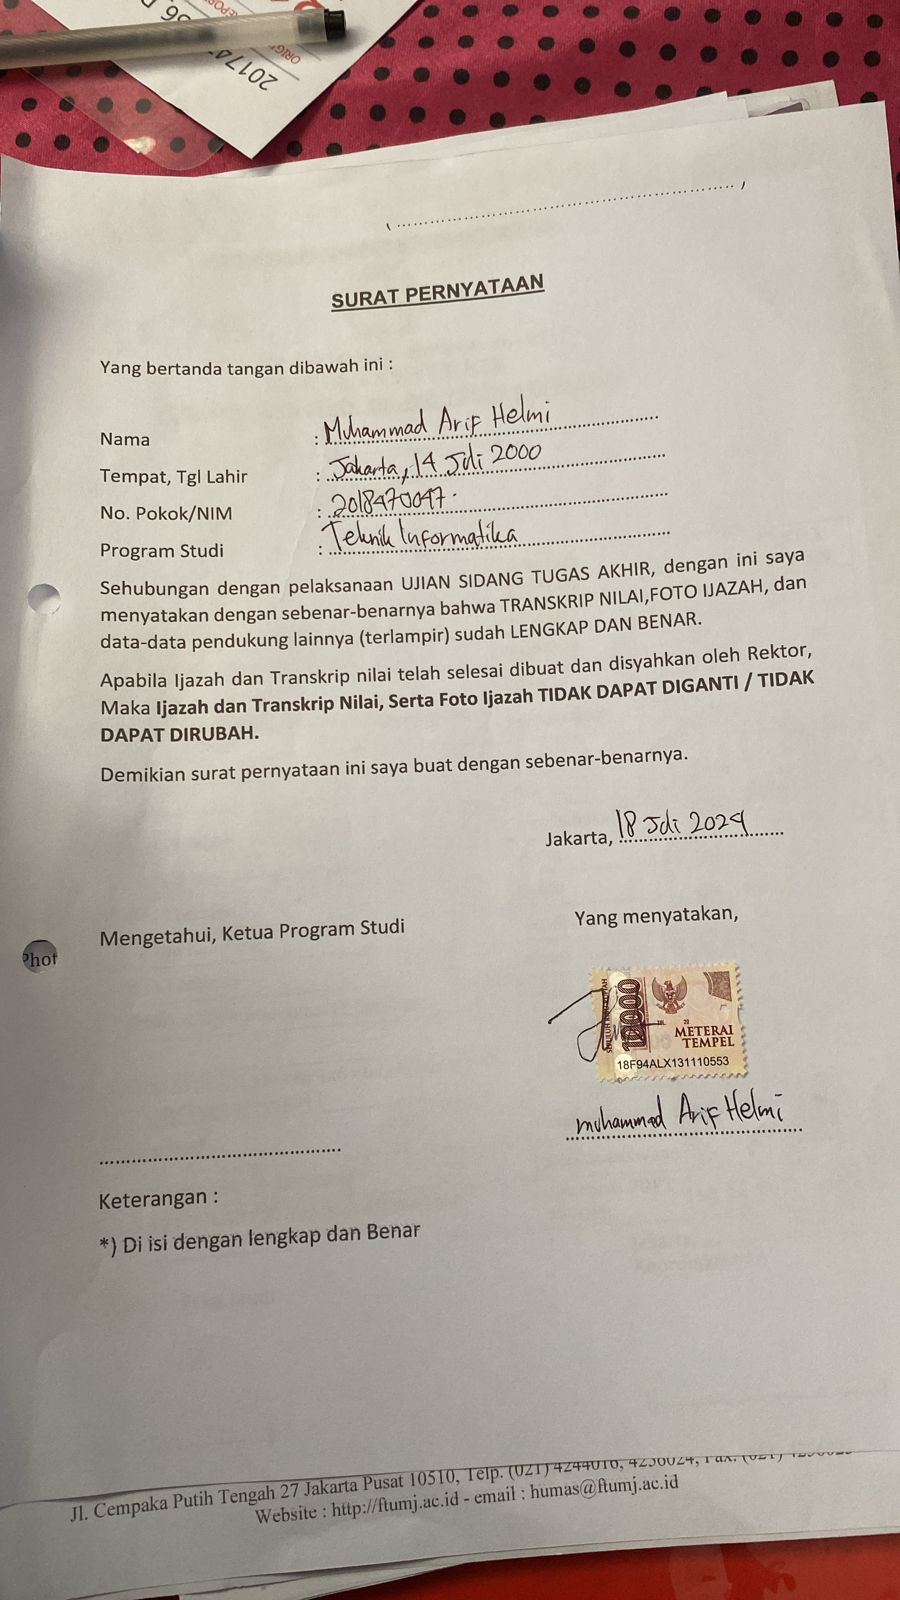 20174
ORIG
(.................................................)
SURAT PERNYATAAN
Yang bertanda tangan dibawah ini :
Nama : Muhammad Arif Helmi
Tempat, Tgl Lahir : Jakarta, 14 Juli 2000
No. Pokok/NIM : 2018470047.
Program Studi : Teknik Informatika
Sehubungan dengan pelaksanaan UJIAN SIDANG TUGAS AKHIR, dengan ini saya
menyatakan dengan sebenar-benarnya bahwa TRANSKRIP NILAI,FOTO IJAZAH, dan
data-data pendukung lainnya (terlampir) sudah LENGKAP DAN BENAR.
Apabila Ijazah dan Transkrip nilai telah selesai dibuat dan disyahkan oleh Rektor,
Maka Ijazah dan Transkrip Nilai, Serta Foto Ijazah TIDAK DAPAT DIGANTI / TIDAK
DAPAT DIRUBAH.
Demikian surat pernyataan ini saya buat dengan sebenar-benarnya.
Jakarta, 18 Juli 2024
Mengetahui, Ketua Program Studi
Yang menyatakan,
Phot
METERAI
TEMPEL
18F94ALX131110553
muhammad Arif Helmi
Keterangan :
*) Di isi dengan lengkap dan Benar
Jl. Cempaka Putih Tengah 27 Jakarta Pusat 10510, Telp. (021) 4244016, 4256024, Fax. (021)
Website : http://ftumj.ac.id - email : humas@ftumj.ac.id